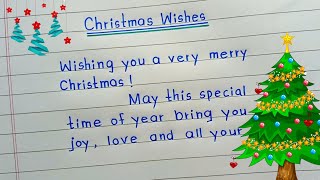 Christmas Wishes
Wishing you a very merry
Christmas!
May this special
time of year bring you
joy, love and all your